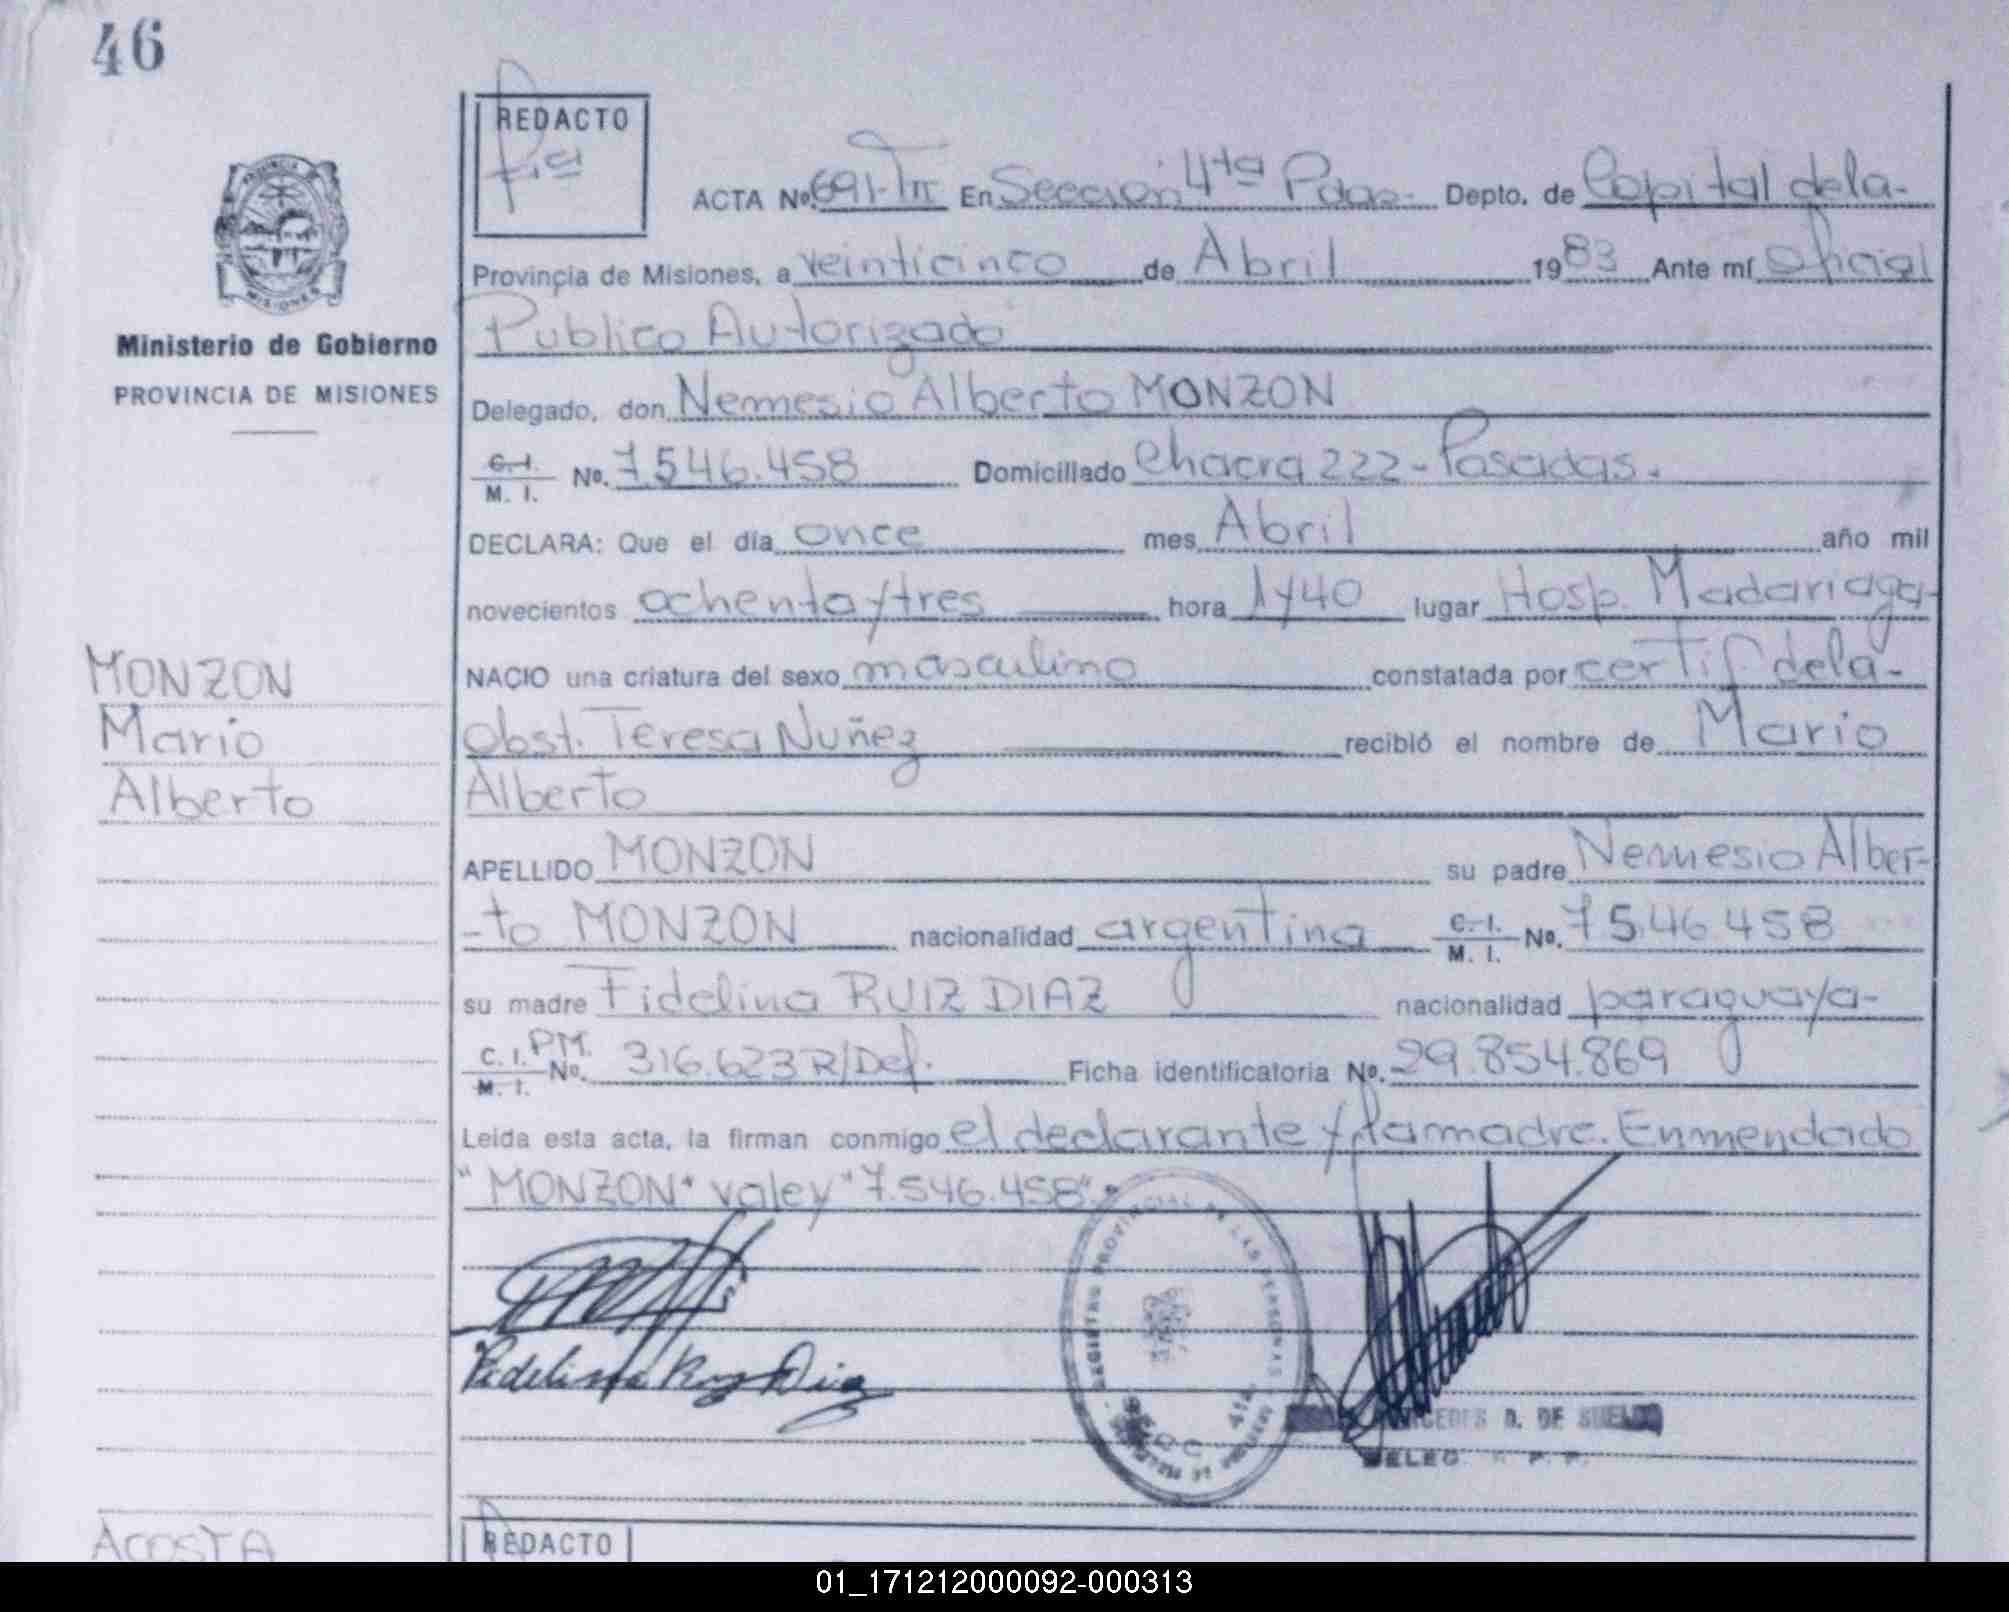 46
REDACTO
ACTA Nº. 691-TII En Sección 4ta Pdas- Depto. de Capital dela-
Provincia de Misiones, a veinticinco de Abril 1983 Ante mí Oficial
Publico Autorizado
Ministerio de Gobierno
PROVINCIA DE MISIONES
Delegado, don Nemesio Alberto MONZON
C. I. / M. I. Nº. 7.546.458 Domiciliado Chacra 222-Posadas.
DECLARA: Que el día once mes Abril año mil
novecientos ochenta y tres hora 1y40 lugar Hosp. Madariaga-
NACIO una criatura del sexo masculino constatada por certif dela-
Obst. Teresa Nuñez recibió el nombre de Mario
Alberto
MONZON
Mario
Alberto
APELLIDO MONZON su padre Nemesio Alber-
-to MONZON nacionalidad argentina C. I. / M. I. Nº. 7546458
su madre Fidelina RUIZ DIAZ nacionalidad paraguaya-
C. I. / M. I. PM. Nº. 316.623 R/Def. Ficha identificatoria Nº. 29.854.869
Leida esta acta, la firman conmigo el declarante y la madre. Enmendado
"MONZON" vale y "7.546.458".
REGISTRO PROVINCIAL DE LAS PERSONAS
SECC 4ta
Fidelina Ruz Diaz
D. DE SUELDO
DELEG. R. P. P.
ACOSTA
REDACTO
01_171212000092-000313